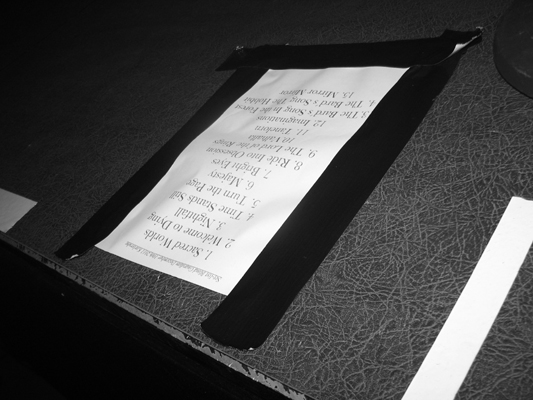 Setlist Blind Guardian
1. Sacred Worlds
2. Welcome to Dying
3. Nightfall
4. Time Stands Still
5. Turn the Page
6. Majesty
7. Bright Eyes
8. Ride Into Obsession
9. The Lord of the Rings
10 Valhalla
11. Tanelorn
12. Imaginations
3. The Bard's Song In the Forest
4. The Bard's Song The Hobbit
15. Mirror Mirror